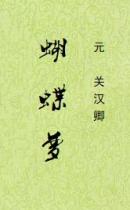 元 关汉卿
蝴蝶梦